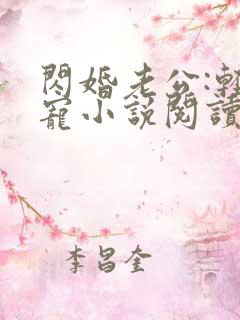 閃婚老公:漸
寵小說閱讀
李昌奎